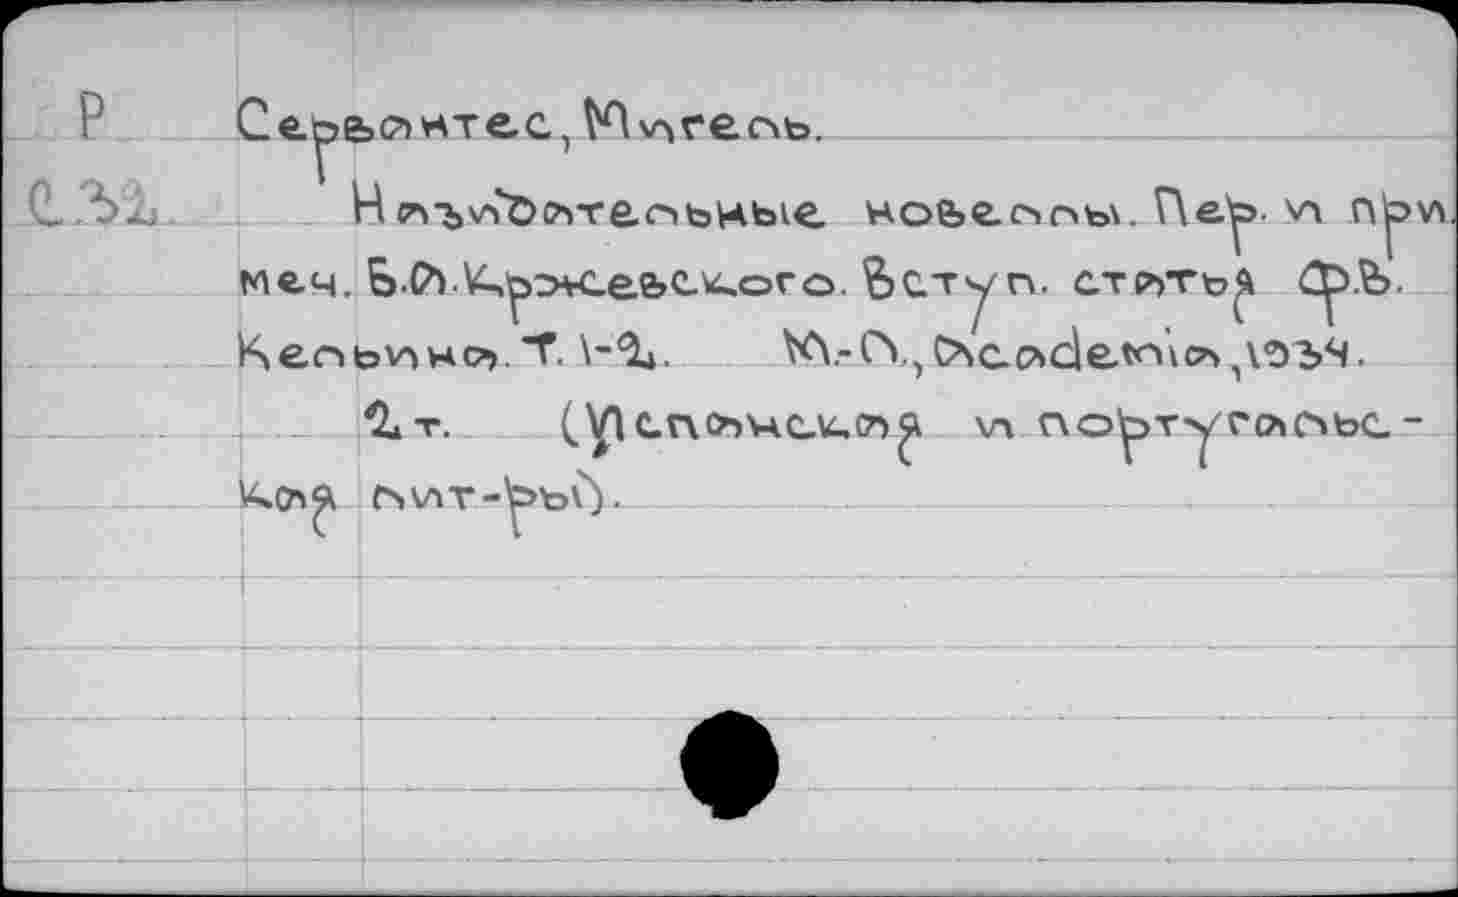 Р Сервантес, Мигель.
С.32 Назидательные новеллы. Пер. и при
меч. Б.А.Кржевского. Вступ. статья Ф.В.
Кельина. Т. 1-2. М.-Л., Academia, 1934.
2 т. (Испанская и португальс-
кая лит-ры).